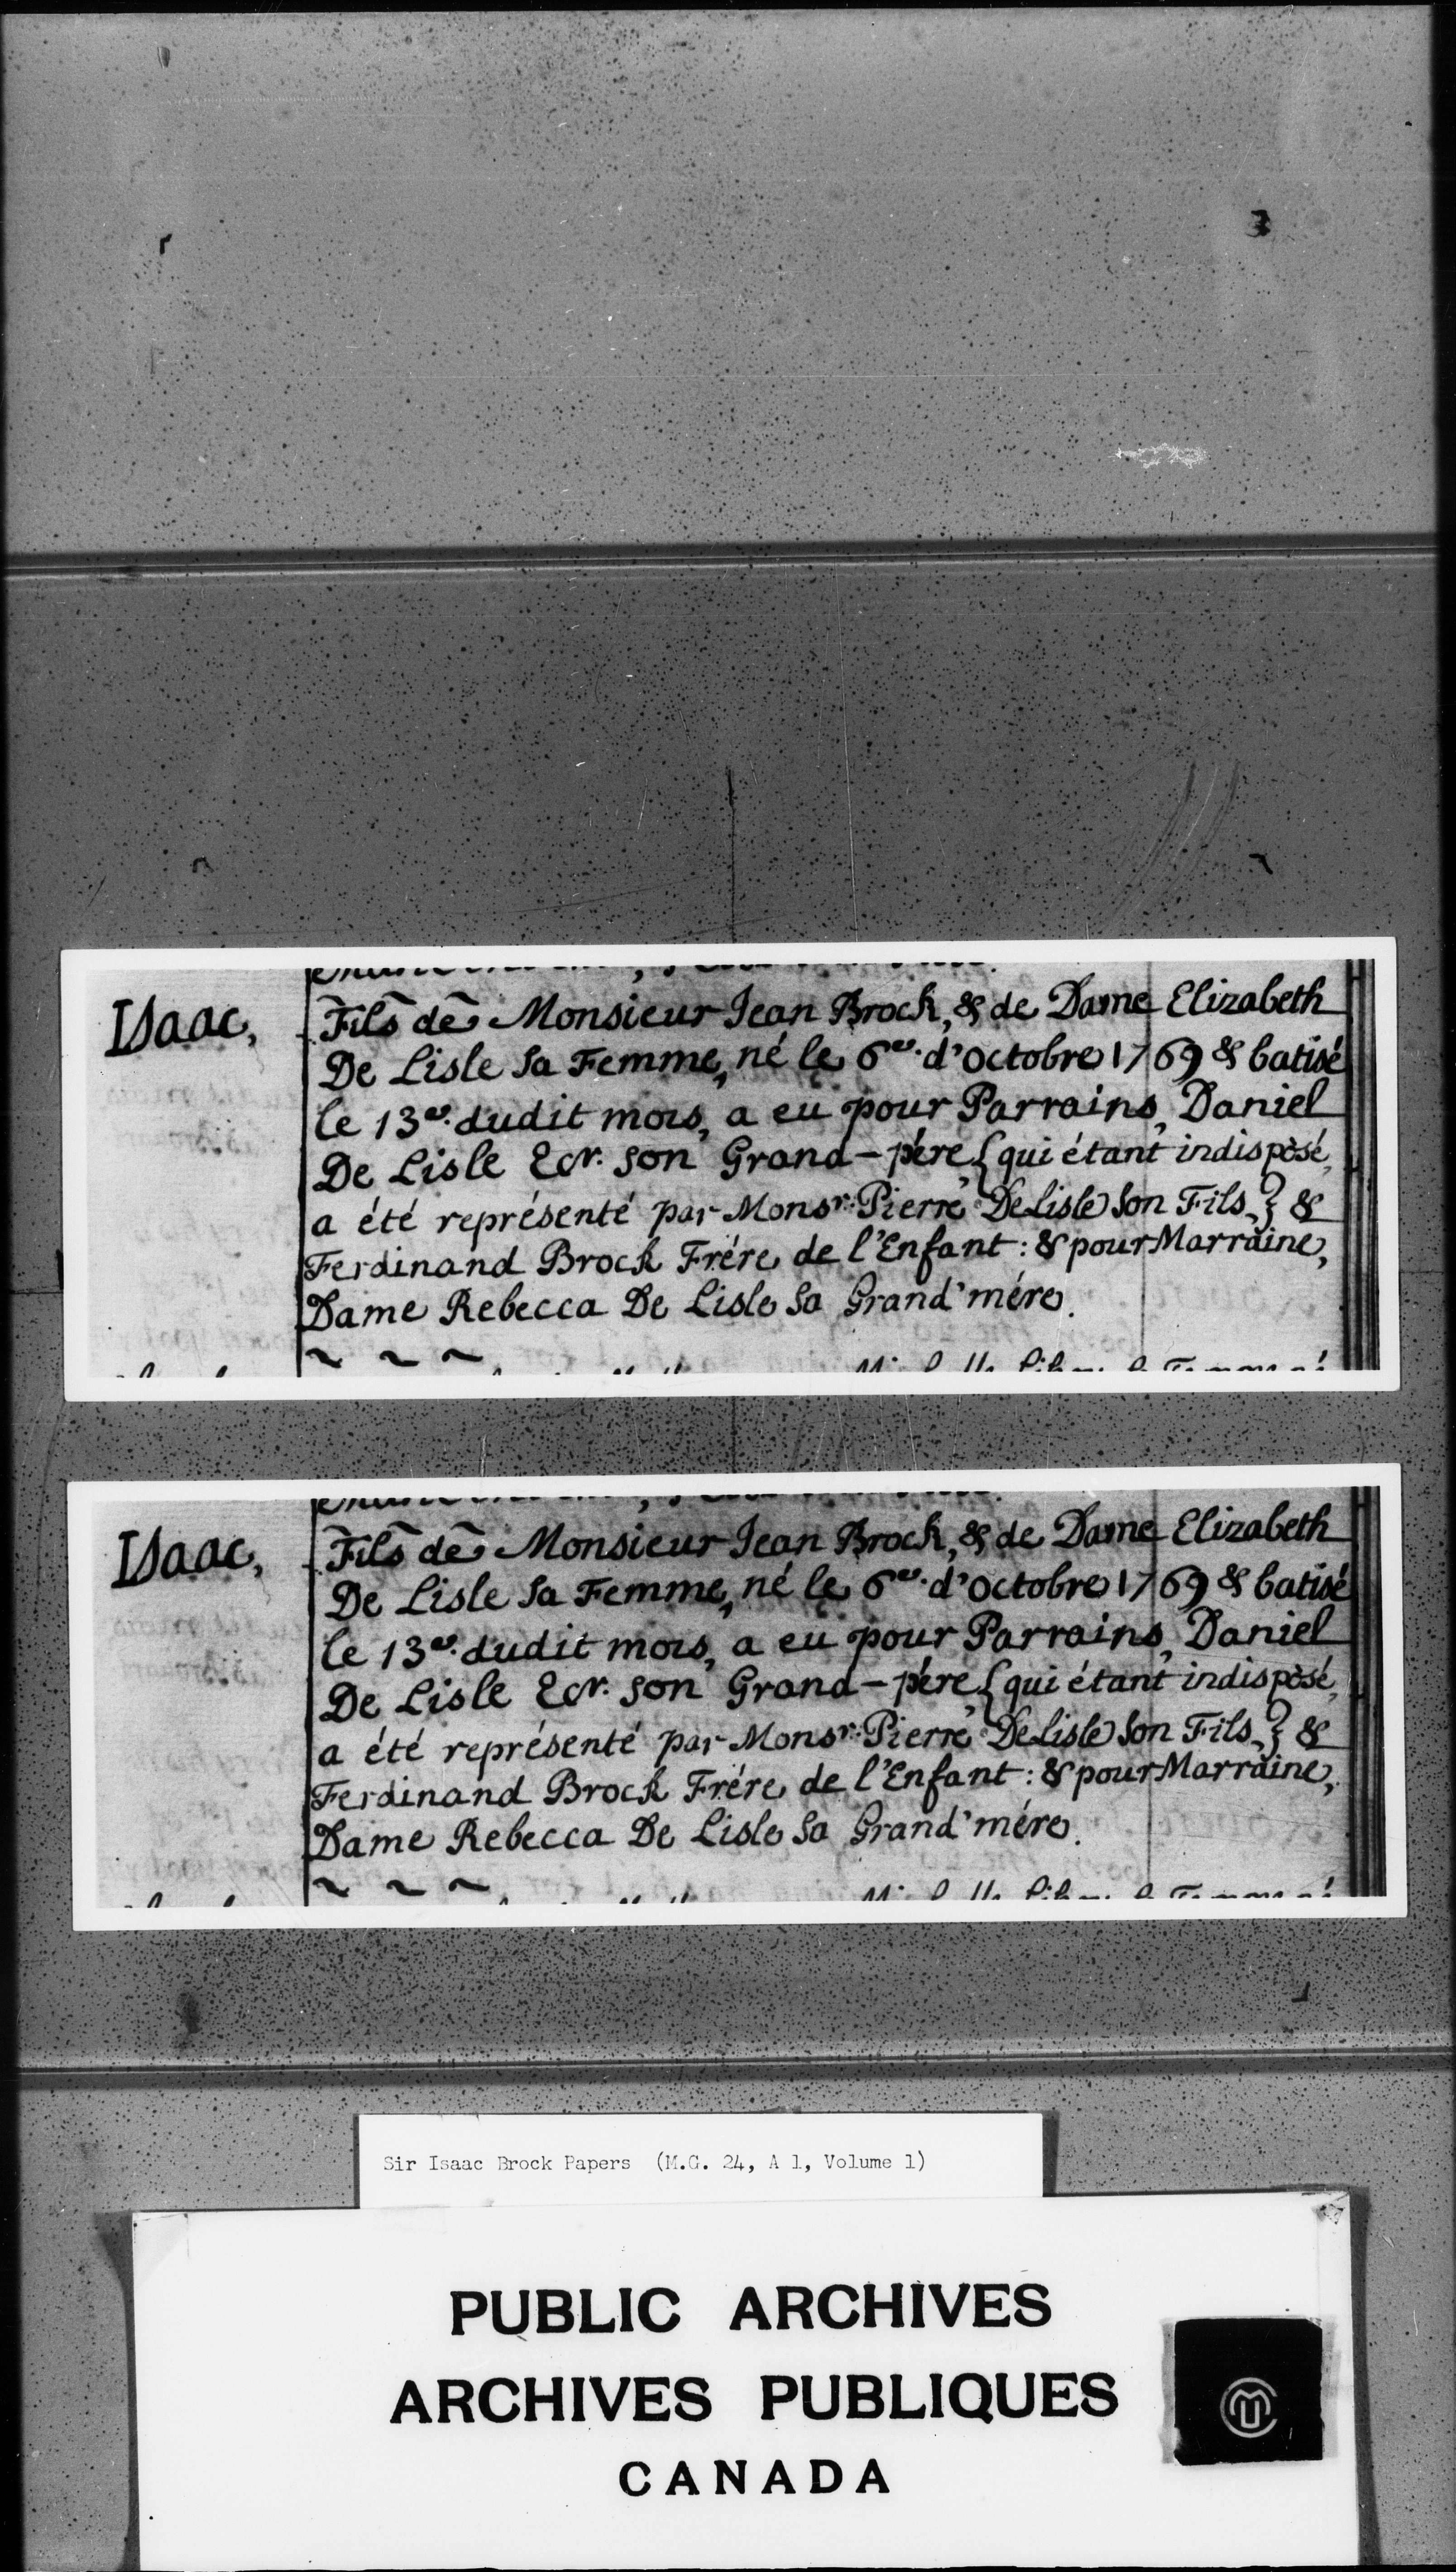 Isaac,
Fils de Monsieur Jean Brock, & de Dame Elizabeth
De Lisle Sa Femme, né le 6e. d'Octobre 1769 & batisé
le 13e. dudit mois, a eu pour Parrains, Daniel
De Lisle Ecr. son Grand-pére { qui étant indisposé,
a été représenté par Monsr. Pierre De Lisle Son Fils, } &
Ferdinand Brock Frére de l'Enfant: & pour Marraine,
Dame Rebecca De Lisle Sa Grand'mére.
Isaac,
Fils de Monsieur Jean Brock, & de Dame Elizabeth
De Lisle Sa Femme, né le 6e. d'Octobre 1769 & batisé
le 13e. dudit mois, a eu pour Parrains, Daniel
De Lisle Ecr. son Grand-pére { qui étant indisposé,
a été représenté par Monsr. Pierre De Lisle Son Fils, } &
Ferdinand Brock Frére de l'Enfant: & pour Marraine,
Dame Rebecca De Lisle Sa Grand'mére.
Sir Isaac Brock Papers (M.G. 24, A 1, Volume 1)
PUBLIC ARCHIVES
ARCHIVES PUBLIQUES
CANADA